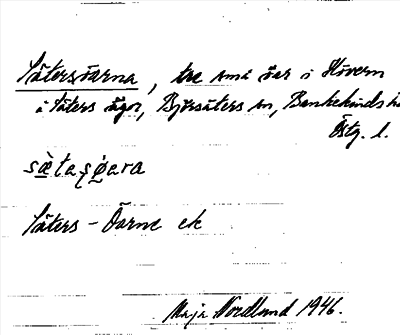 Sätersöarna, tre små öar i Hövern
å Säters ägor, Björsäters sn, Bankekinds hd
Östg. l.
sæ̀tasø̣ara
Säters-Öarne ek
Maja Nordlund 1946.